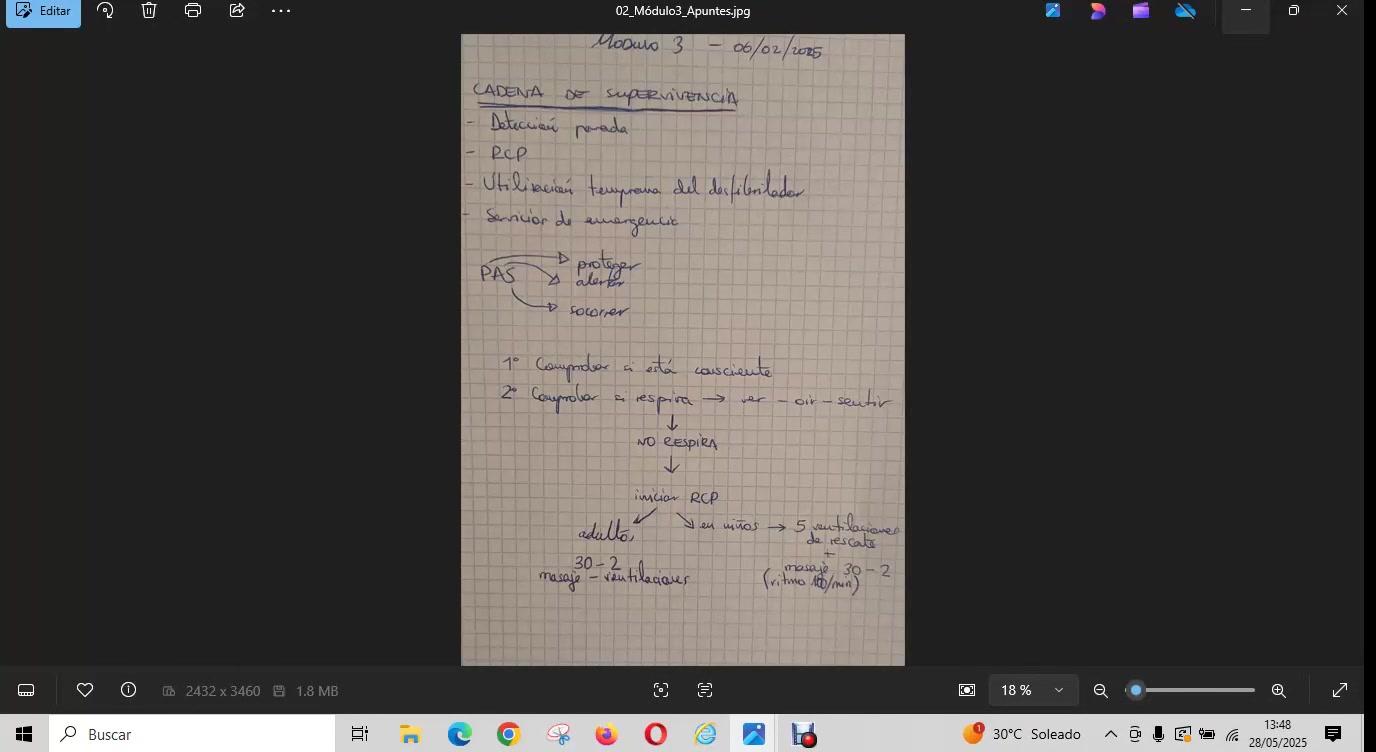 Editar
02_Módulo3_Apuntes.jpg
Modulo 3 - 06/02/2025
CADENA DE SUPERVIVENCIA
- Detección parada
- RCP
- Utilización temprana del desfibrilador
- Servicios de emergencia
PAS
proteger
alertar
socorrer
1º Comprobar si está consciente
2º Comprobar si respira → ver - oir - sentir
↓
NO RESPIRA
↓
iniciar RCP
adultos
30 - 2
masaje - ventilaciones
en niños → 5 ventilaciones
de rescate
+
masaje 30 - 2
(ritmo 100/min)
2432 x 3460
1.8 MB
18 %
Buscar
1
30°C Soleado
13:48
28/05/2025